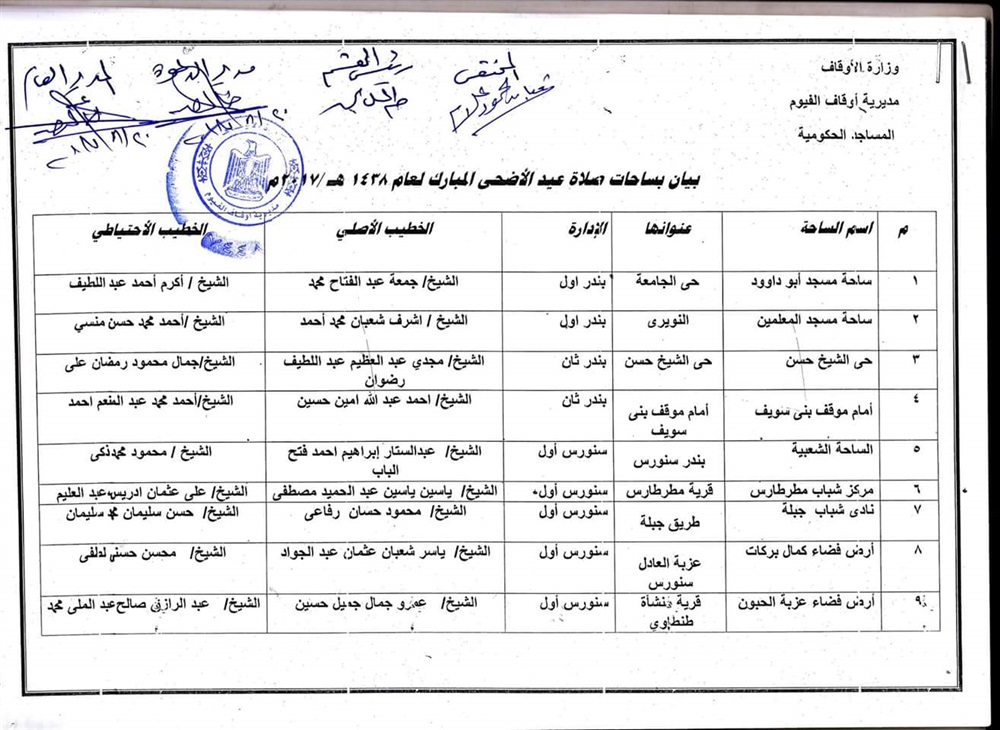 وزارة الأوقاف
مديرية أوقاف الفيوم
المساجد الحكومية
المفتش
رئيس التفتيش
مدير الدعوة
المدير العام
بيان بساحات صلاة عيد الأضحى المبارك لعام ١٤٣٨ هـ /٢٠١٧م
مديرية أوقاف الفيوم
م اسم الساحة عنوانها الإدارة الخطيب الأصلي الخطيب الأحتياطي
١ ساحة مسجد أبو داوود حى الجامعة بندر اول الشيخ/ جمعة عبد الفتاح محمد الشيخ / أكرم أحمد عبد اللطيف
٢ ساحة مسجد المعلمين النويرى بندر اول الشيخ / اشرف شعبان محمد أحمد الشيخ /أحمد محمد حسن منسي
٣ حى الشيخ حسن حى الشيخ حسن بندر ثان الشيخ/ مجدي عبد العظيم عبد اللطيف رضوان الشيخ/جمال محمود رمضان على
٤ أمام موقف بنى سويف أمام موقف بنى سويف بندر ثان الشيخ/ احمد عبد الله امين حسين الشيخ/أحمد محمد عبد المنعم احمد
٥ الساحة الشعبية بندر سنورس سنورس أول الشيخ/ عبدالستار إبراهيم احمد فتح الباب الشيخ / محمود محمدذكى
٦ مركز شباب مطرطارس قرية مطرطارس سنورس أول الشيخ/ ياسين ياسين عبد الحميد مصطفى الشيخ/ على عثمان ادريس عبد العليم
٧ نادى شباب جبلة طريق جبلة سنورس أول الشيخ/ محمود حسان رفاعى الشيخ/ حسن سليمان محمد سليمان
٨ أرض فضاء كمال بركات عزبة العادل سنورس سنورس أول الشيخ/ ياسر شعبان عثمان عبد الجواد الشيخ/ محسن حسنى
٩ أرض فضاء عزبة الحبون قرية منشأة طنطاوي سنورس أول الشيخ/ عمرو جمال جميل حسين الشيخ/ عبد الرازق صالح محمد